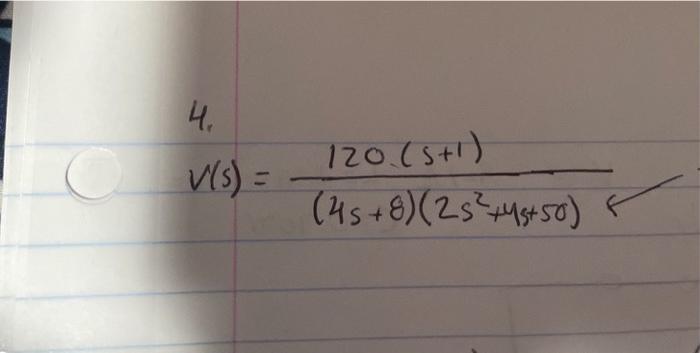 4.
V(s) = 120.(s+1)
(4s+8)(2s²+4s+50)